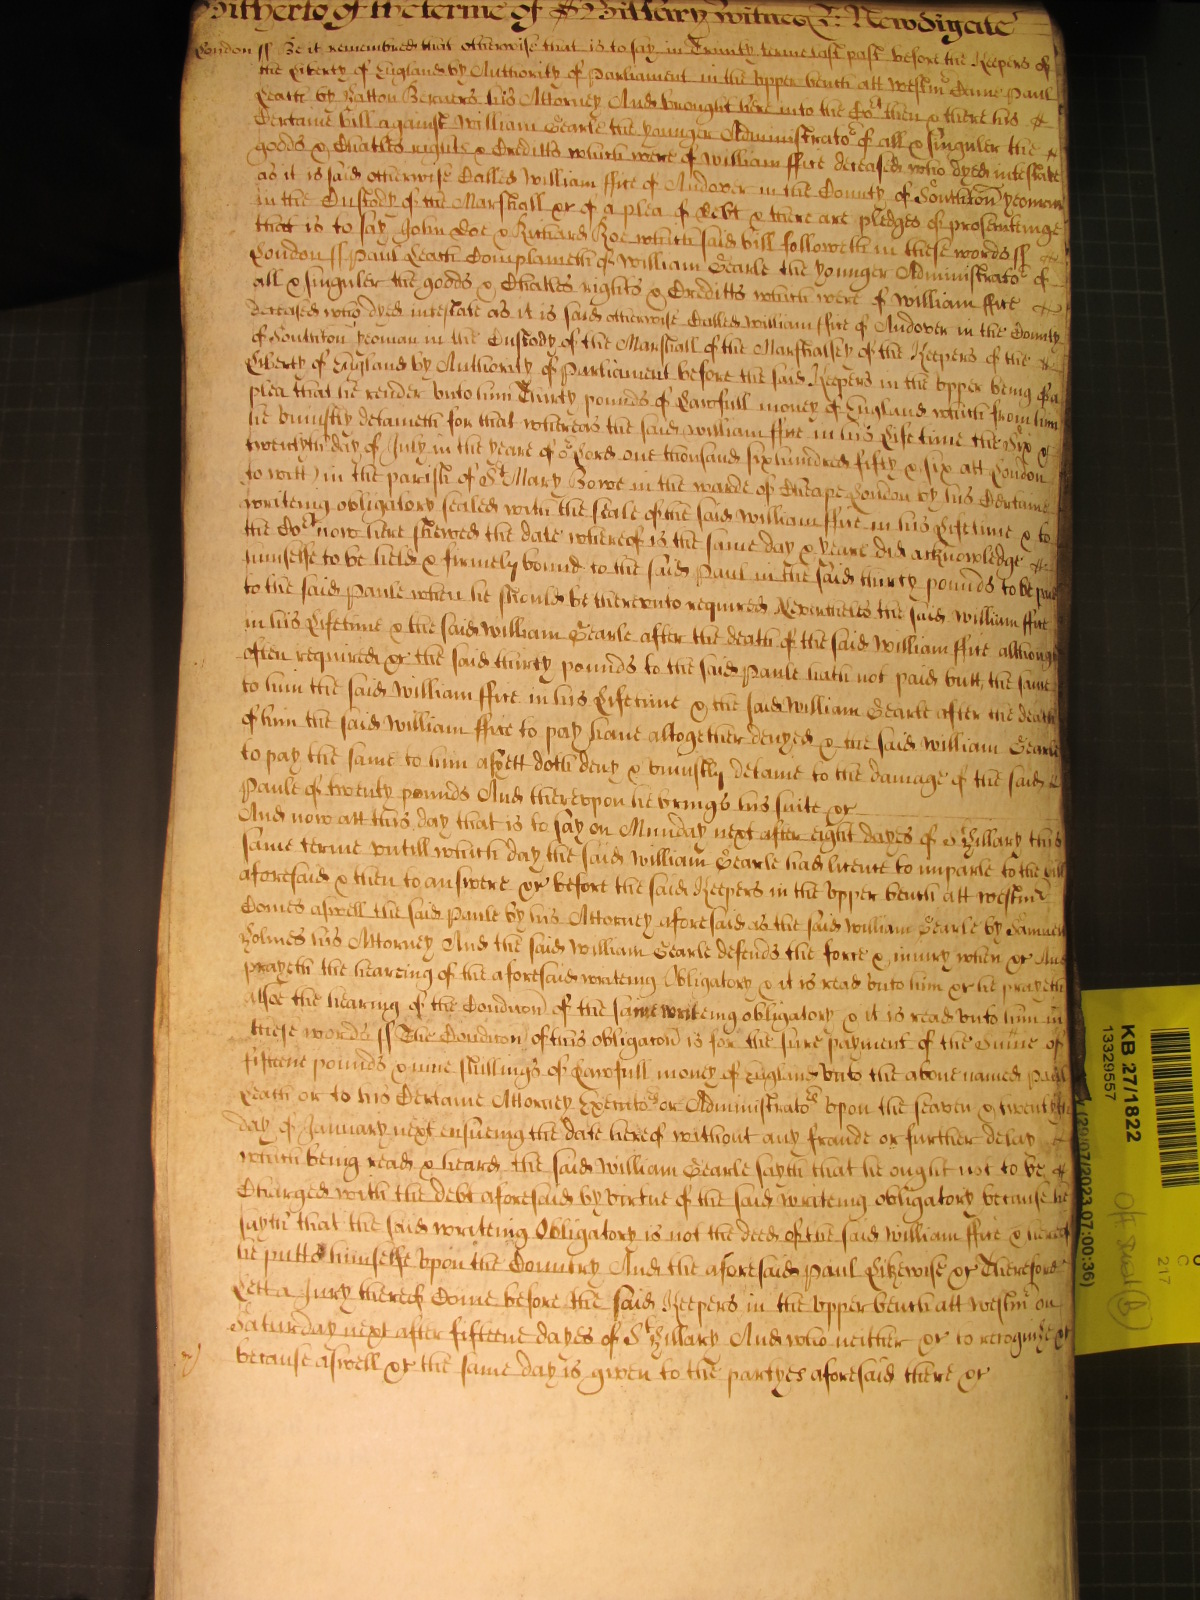 Hitherto of the terme of St Hillary witnes R: Newdigate
London ss Be it remembred that otherwise that is to say in Trinity terme last past before the Keepers of
the Liberty of England by Authority of Parliament in the vpper bench att Westmr Came Paul
Leath by Hatton Berners his Attorney And brought here into the Cort then & there his
Certaine bill against William Gearle the younger Administrator of all & singuler the
goods & Chatles rights & Creditts which were of William ffree deceased who dyed intestate
as it is said otherwise Called William ffree of Andover in the County of Southton yeoman
in the Custody of the Marshall &c of a plea of debt & there are pledges of prosecutinge
that is to say John Doe & Richard Roe which said bill followeth in these words ss
London ss Paul Leath Complaineth of William Gearle the younger Administrator of
all & singuler the goods & Chatles rights & Creditts which were of William ffree
deceased who dyed intestate as it is said otherwise Called William ffree of Andover in the County
of Southton yeoman in the Custody of the Marshall of the Marshalsey of the Keepers of the
Liberty of England by Authority of Parliament before the said Keepers in the vpper being of a
plea that he render vnto him Thirty pounds of Lawfull money of England which from him
he vniustly detaineth for that whereas the said William ffree in his Life time the Six &
twentyth day of July in the yeare of or Lord one thousand six hundred fifty & six att London
to witt) in the parish of St Mary Bowe in the warde of Cheape London by his Certaine
writeing obligatory sealed with the seale of the said William ffree in his Lifetime & to
the Cort now here shewed the date whereof is the same day & yeare did acknowledge
himselfe to be held & firmely bound to the said Paul in the said thirty pounds to be paid
to the said Paule when he should be therevnto required Neverthelesse the said William ffree
in his Lifetime & the said William Gearle after the death of the said William ffree although
often required &c the said thirty pounds to the said Paule hath not paid butt the same
to him the said William ffree in his Lifetime & the said William Gearle after the death
of him the said William ffree to pay haue altogether denyed & the said William Gearle
to pay the same to him as yett doth deny & vniustly detaine to the damage of the said
Paule of twenty pounds And therevpon he brings his suite &c
And now att this day that is to say on Munday next after eight dayes of St Hillary this
same terme vntill which day the said William Gearle had licence to imparle to the bill
aforesaid & then to answere &c before the said Keepers in the vpper bench att Westmr
Comes aswell the said Paule by his Attorney aforesaid as the said William Gearle by Samuel
Holmes his Attorney And the said William Gearle defends the force & iniury when &c And
prayeth the heareing of the aforesaid writeing Obligatory & it is read vnto him &c he prayeth
alsoe the hearing of the Condicon of the same writeing obligatory & it is read vnto him in
these words ss The Condicon of this obligacon is for the sure payment of the Summe of
fifteene pounds & nine shillings of Lawfull money of England vnto the aboue named Paul
Leath or to his Certaine Attorney Executors or Administrators vpon the seaven & twentyth
day of January next ensueing the date hereof without any fraude or further delay
which being read & heard the said William Gearle sayth that he ought not to be
Charged with the debt aforesaid by virtue of the said writeing obligatory because he
sayth that the said writeing Obligatory is not the deed of the said William ffree & hereof
he putts himselfe vpon the Country And the aforesaid Paul Likewise &c Therefore
Lett a Jury thereof Come before the said Keepers in the vpper bench att Westmr on
Saturday next after fifteene dayes of St Hillary And who neither &c to recognize &c
because aswell &c the same day is given to the partyes aforesaid there &c
KB 27/1822
13329557
(29/07/2023 07:00:36)
217